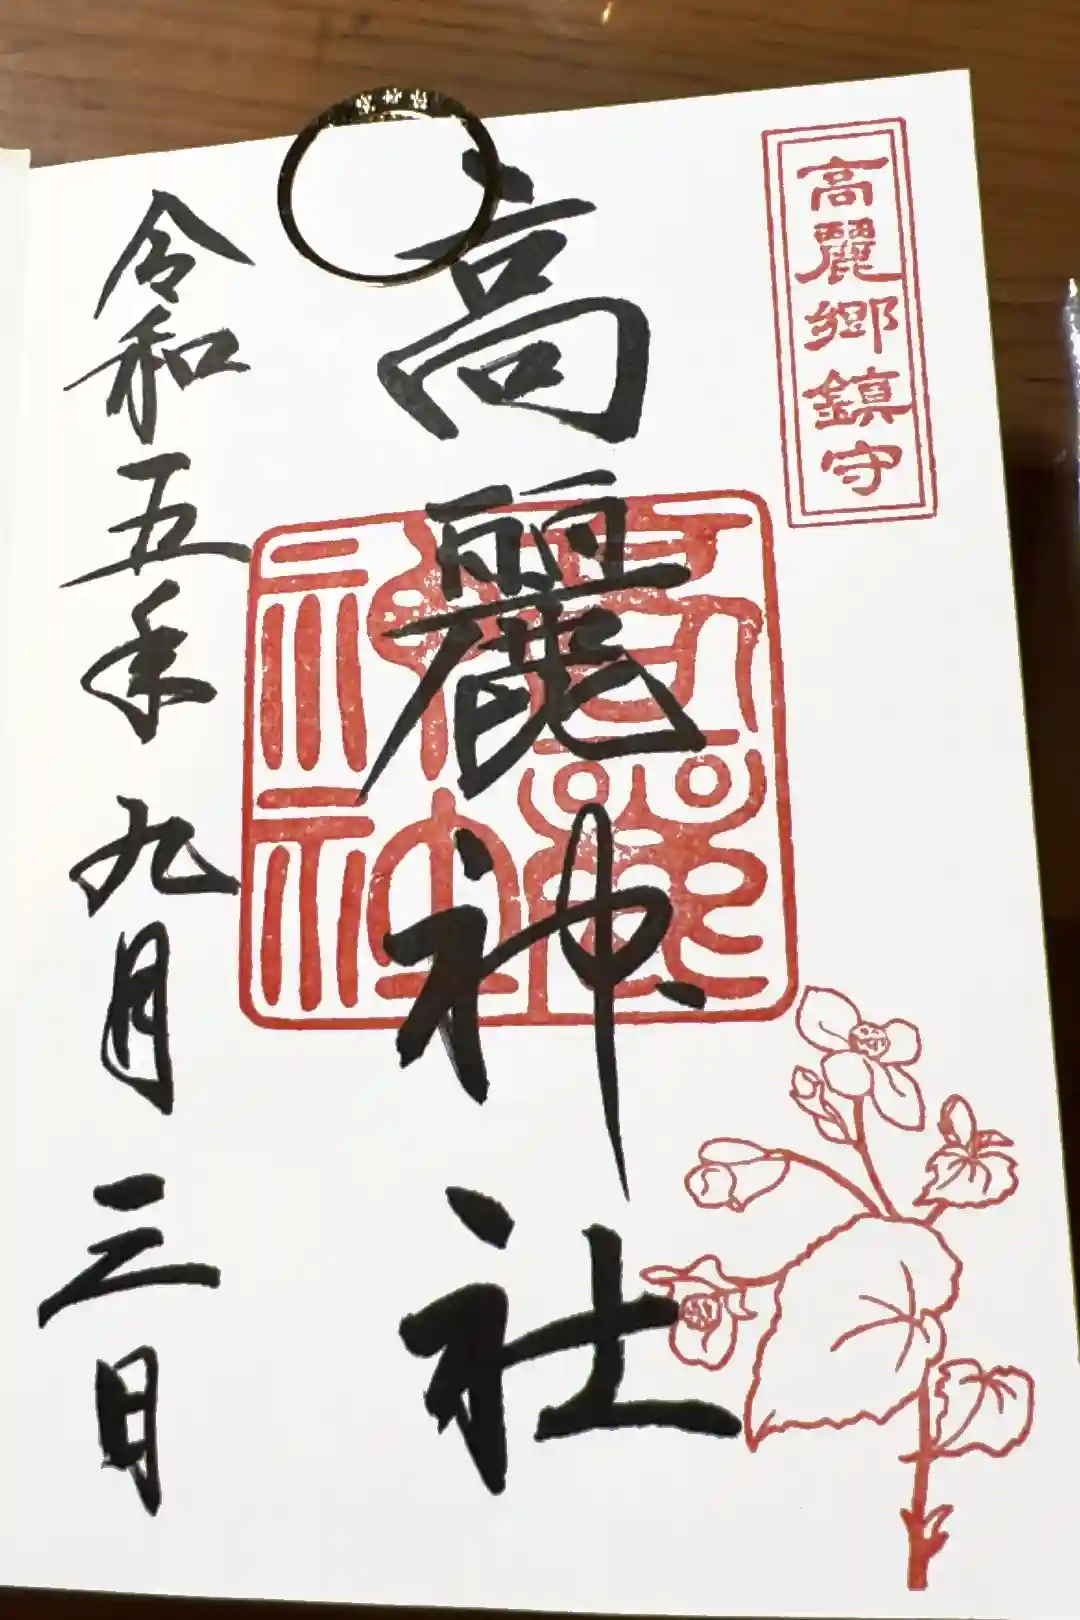 高麗郷鎮守
高麗神社
高麗神社
令和五年九月三日